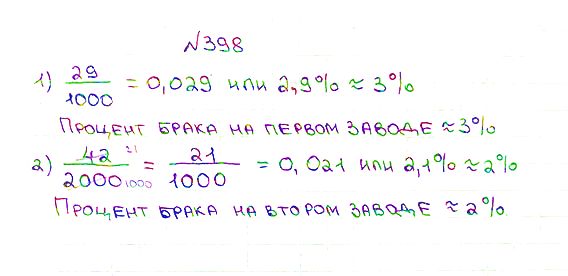 №398
1) 29/1000 = 0,029 или 2,9% ≈ 3%
Процент брака на первом заводе ≈3%
2) 42 21/2000 1000 = 21/1000 = 0,021 или 2,1% ≈ 2%
Процент брака на втором заводе ≈2%